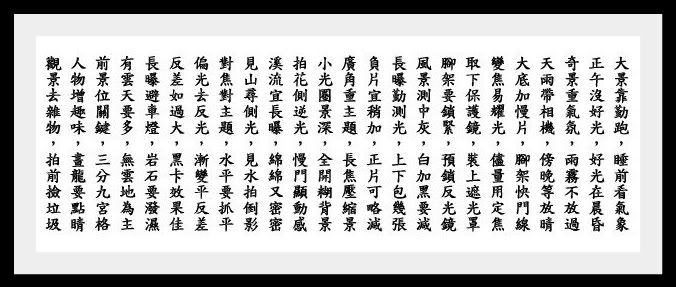 大景靠勤跑，睡前看氣象
正午沒好光，好光在晨昏
奇景重氣氛，雨霧不放過
天雨帶相機，傍晚等放晴
大底加慢片，腳架快門線
變焦易耀光，儘量用定焦
取下保護鏡，裝上遮光罩
腳架要鎖緊，預鎖反光鏡
風景測中灰，白加黑要減
長曝勤測光，上下包幾張
負片宜稍加，正片可略減
廣角重主題，長焦壓縮景
小光圈景深，全開糊背景
拍花側逆光，慢門顯動感
溪流宜長曝，綿綿又密密
見山尋側光，見水拍倒影
對焦對主題，水平要抓平
偏光去反光，漸變平反差
反差如過大，黑卡效果佳
長曝避車燈，岩石要潑濕
有雲天要多，無雲地為主
前景位關鍵，三分九宮格
人物增趣味，畫龍要點晴
觀景去雜物，拍前撿垃圾